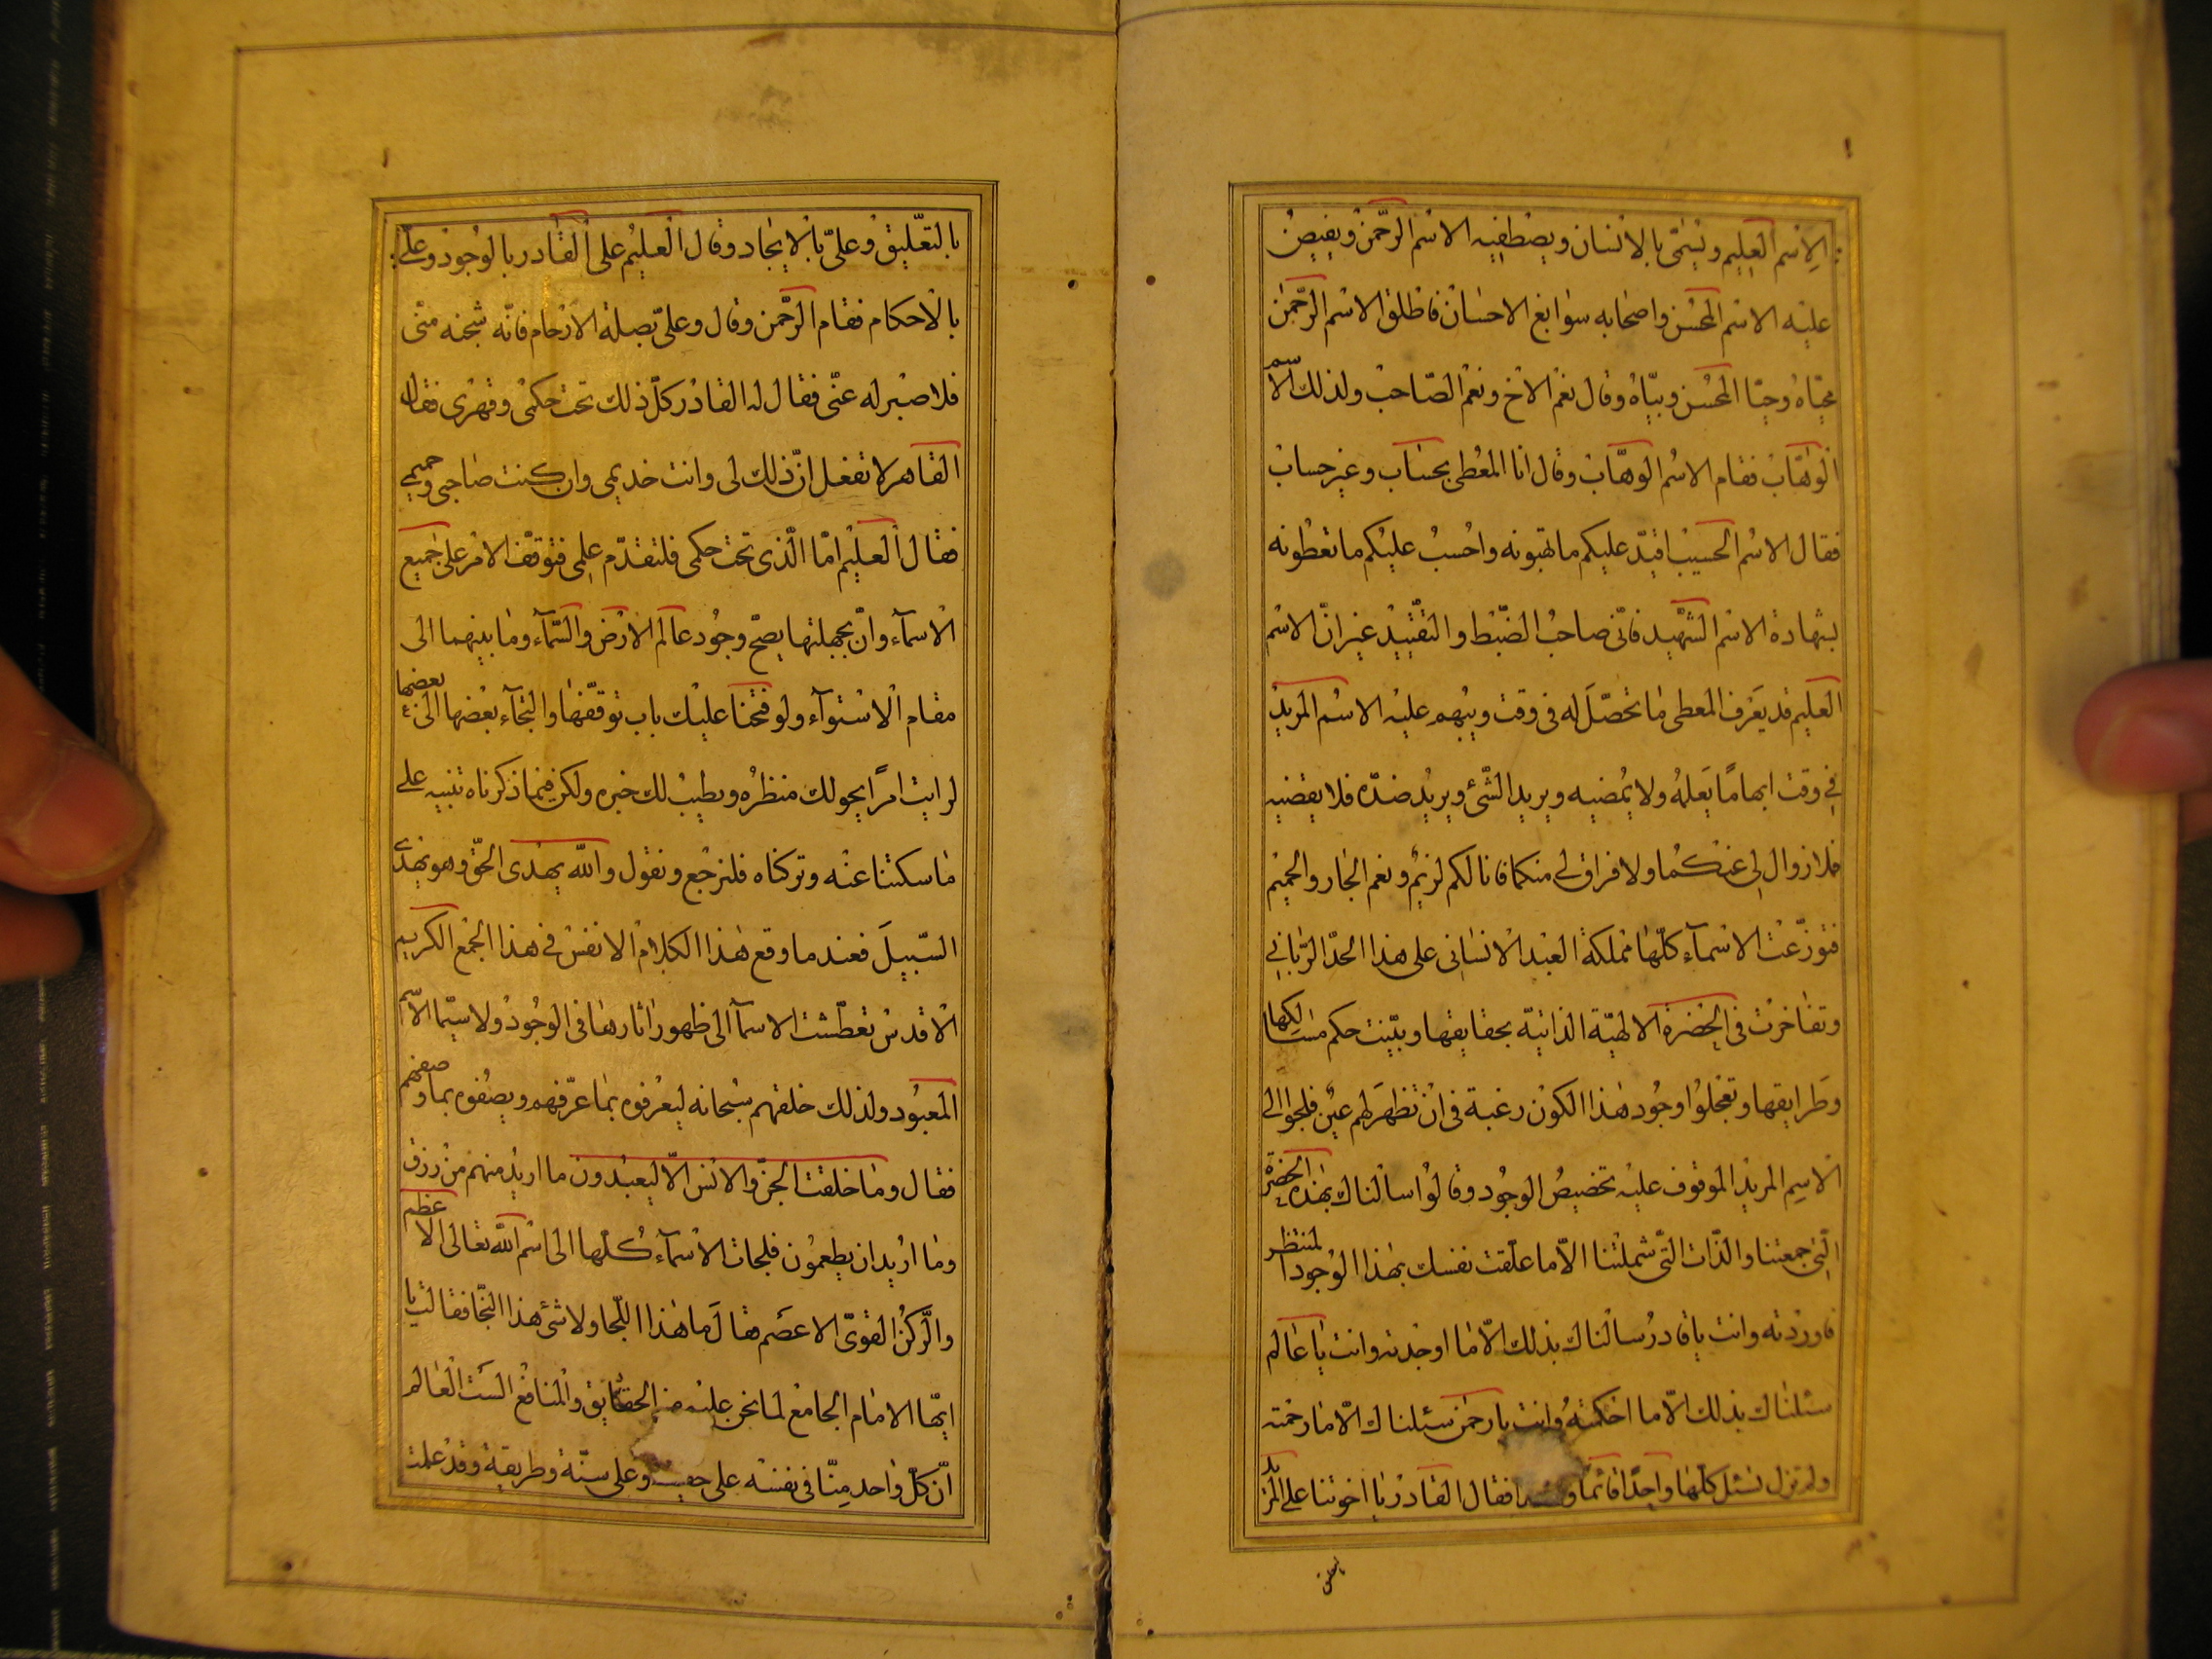 الاسم العليم ويسمى بالانسان ويصطفيه الاسم الرحمن ويفيض
عليه الاسم المحسن واصحابه سوابغ الاحسان فاطلق الاسم الرحمن
محياه وحيا المحسن وبياه وقال نعم الاخ ونعم الصاحب ولذلك الاسم
الوهاب فقام الاسم الوهاب وقال انا المعطى بحساب وغير حساب
فقال الاسم الحسيب اقيد عليكم ما تهبونه واحسب عليكم ما تعطونه
بشهادة الاسم الشهيد فانى صاحب الضبط والتقييد غير ان الاسم
العليم قد يعرف المعطى ما تحصل له فى وقت ويبهم عليه الاسم المريد
فى وقت ابهاما يعلمه ولا يمضيه ويريد الشئ ويريد ضده فلا يقضيه
فلا زوال لى عنكما ولا فراق لى منكما فانا لكم لزيم ونعم الجار والحميم
فتوزعت الاسماء كلها مملكة العبد الانسانى على هذا الحد الربانى
وتفاخرت فى الحضرة الالهية الذاتية بحقايقها وبينت حكم مسالكها
وطرايقها وتعجلوا وجود هذا الكون رغبة فى ان تظهر لهم عين فلجوا الى
الاسم المريد الموقوف عليه تخصيص الوجود وقالوا سالناك بهذه الحضرة
التى جمعتنا والذات التى شملتنا الا ما علقت نفسك بهذا الوجود المنتظر
فاوردته وانت يا قادر سالناك بذلك الا ما اوجدته وانت يا عالم
سئلناك بذلك الا ما احكمته وانت يا رحمن سئلناك الا ما رحمته
ولم تزل نسئل كلها واحدا قائما فقال القادر يا اخوتنا على المريد
بالتعليق وعلى بالايجاد وقال العليم على القادر بالوجود وعلى
بالاحكام فقام الرحمن وقال وعلى بصلة الارحام فانه شجنه منى
فلا صبر له عنى فقال له القادر كل ذلك تحت حكمى وقهرى فقال
القاهر لا تفعل ان ذلك لى وانت خديمى وان كنت صاحبى وحميمى
فقال العليم اما الذى تحت حكمى فليتقدم علمى فتوقف الامر على جميع
الاسمآء وان بجملتها يصح وجود عالم الارض والسمآء وما بينهما الى
مقام الاستوآء ولو فتحنا عليك باب توقفها والتجآء بعضها الى بعضها
لرايت امرا يهولك منظره ويطيب لك خبره ولكن فيما ذكرناه تنبيه على
ما سكتنا عنه وتركناه فلنرجع ونقول والله يهدى الحق وهو يهدى
السبيل فعند ما وقع هذا الكلام الانفس فى هذا الجمع الكريم
الاقدس تعطشت الاسمآ الى ظهور اثارها فى الوجود ولا سيما الاسم
المعبود ولذلك خلقهم سبحانه ليعرفوه بما عرفهم ويصفوه بما وصفهم
فقال وما خلقت الجن والانس الا ليعبدون ما اريد منهم من رزق
وما اريد ان يطعمون فلجات الاسمآء كلها الى اسم الله تعالى الاعظم
والركن القوى الاعصم فقال ما هذا اللجا ولاى شئ هذا النجا فقالت يا
ايها الامام الجامع لما نحن عليه من الحقايق والمنافع الست العالم
ان كل واحد منا فى نفسه على وعلى سنة وطريقة وقد علمت